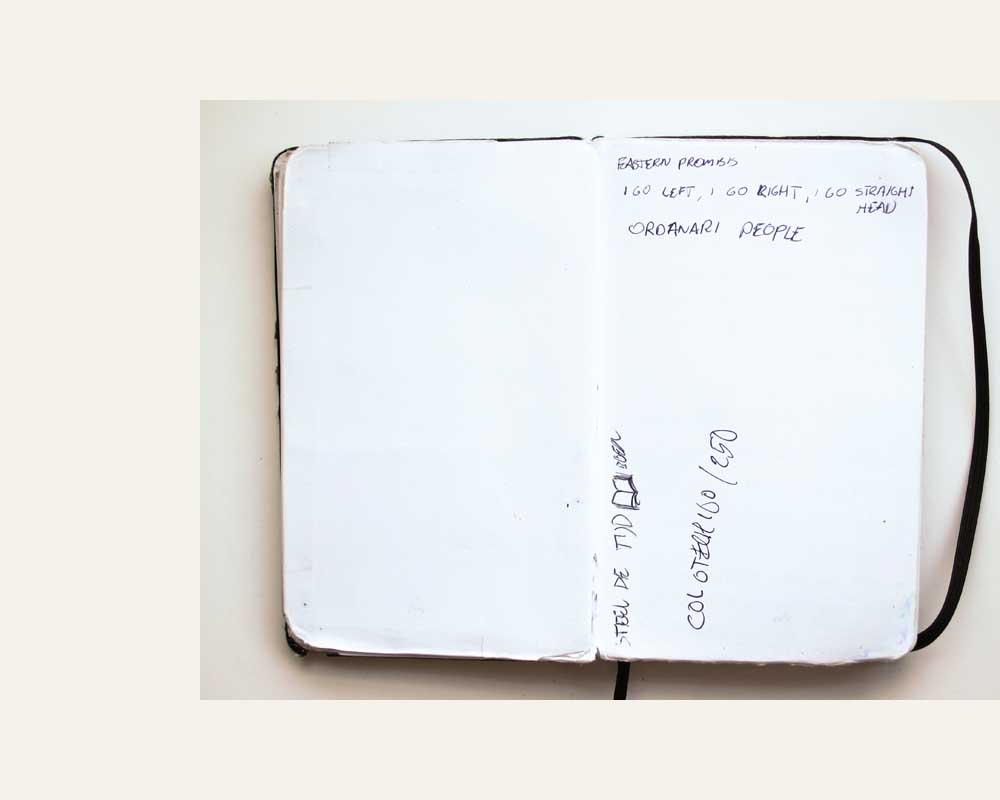 EASTERN PROMISIS
I GO LEFT, I GO RIGHT, I GO STRAIGHT
HEAD
ORDANARI PEOPLE
STEEL DE TIJD
COLOTECH 160 / 250